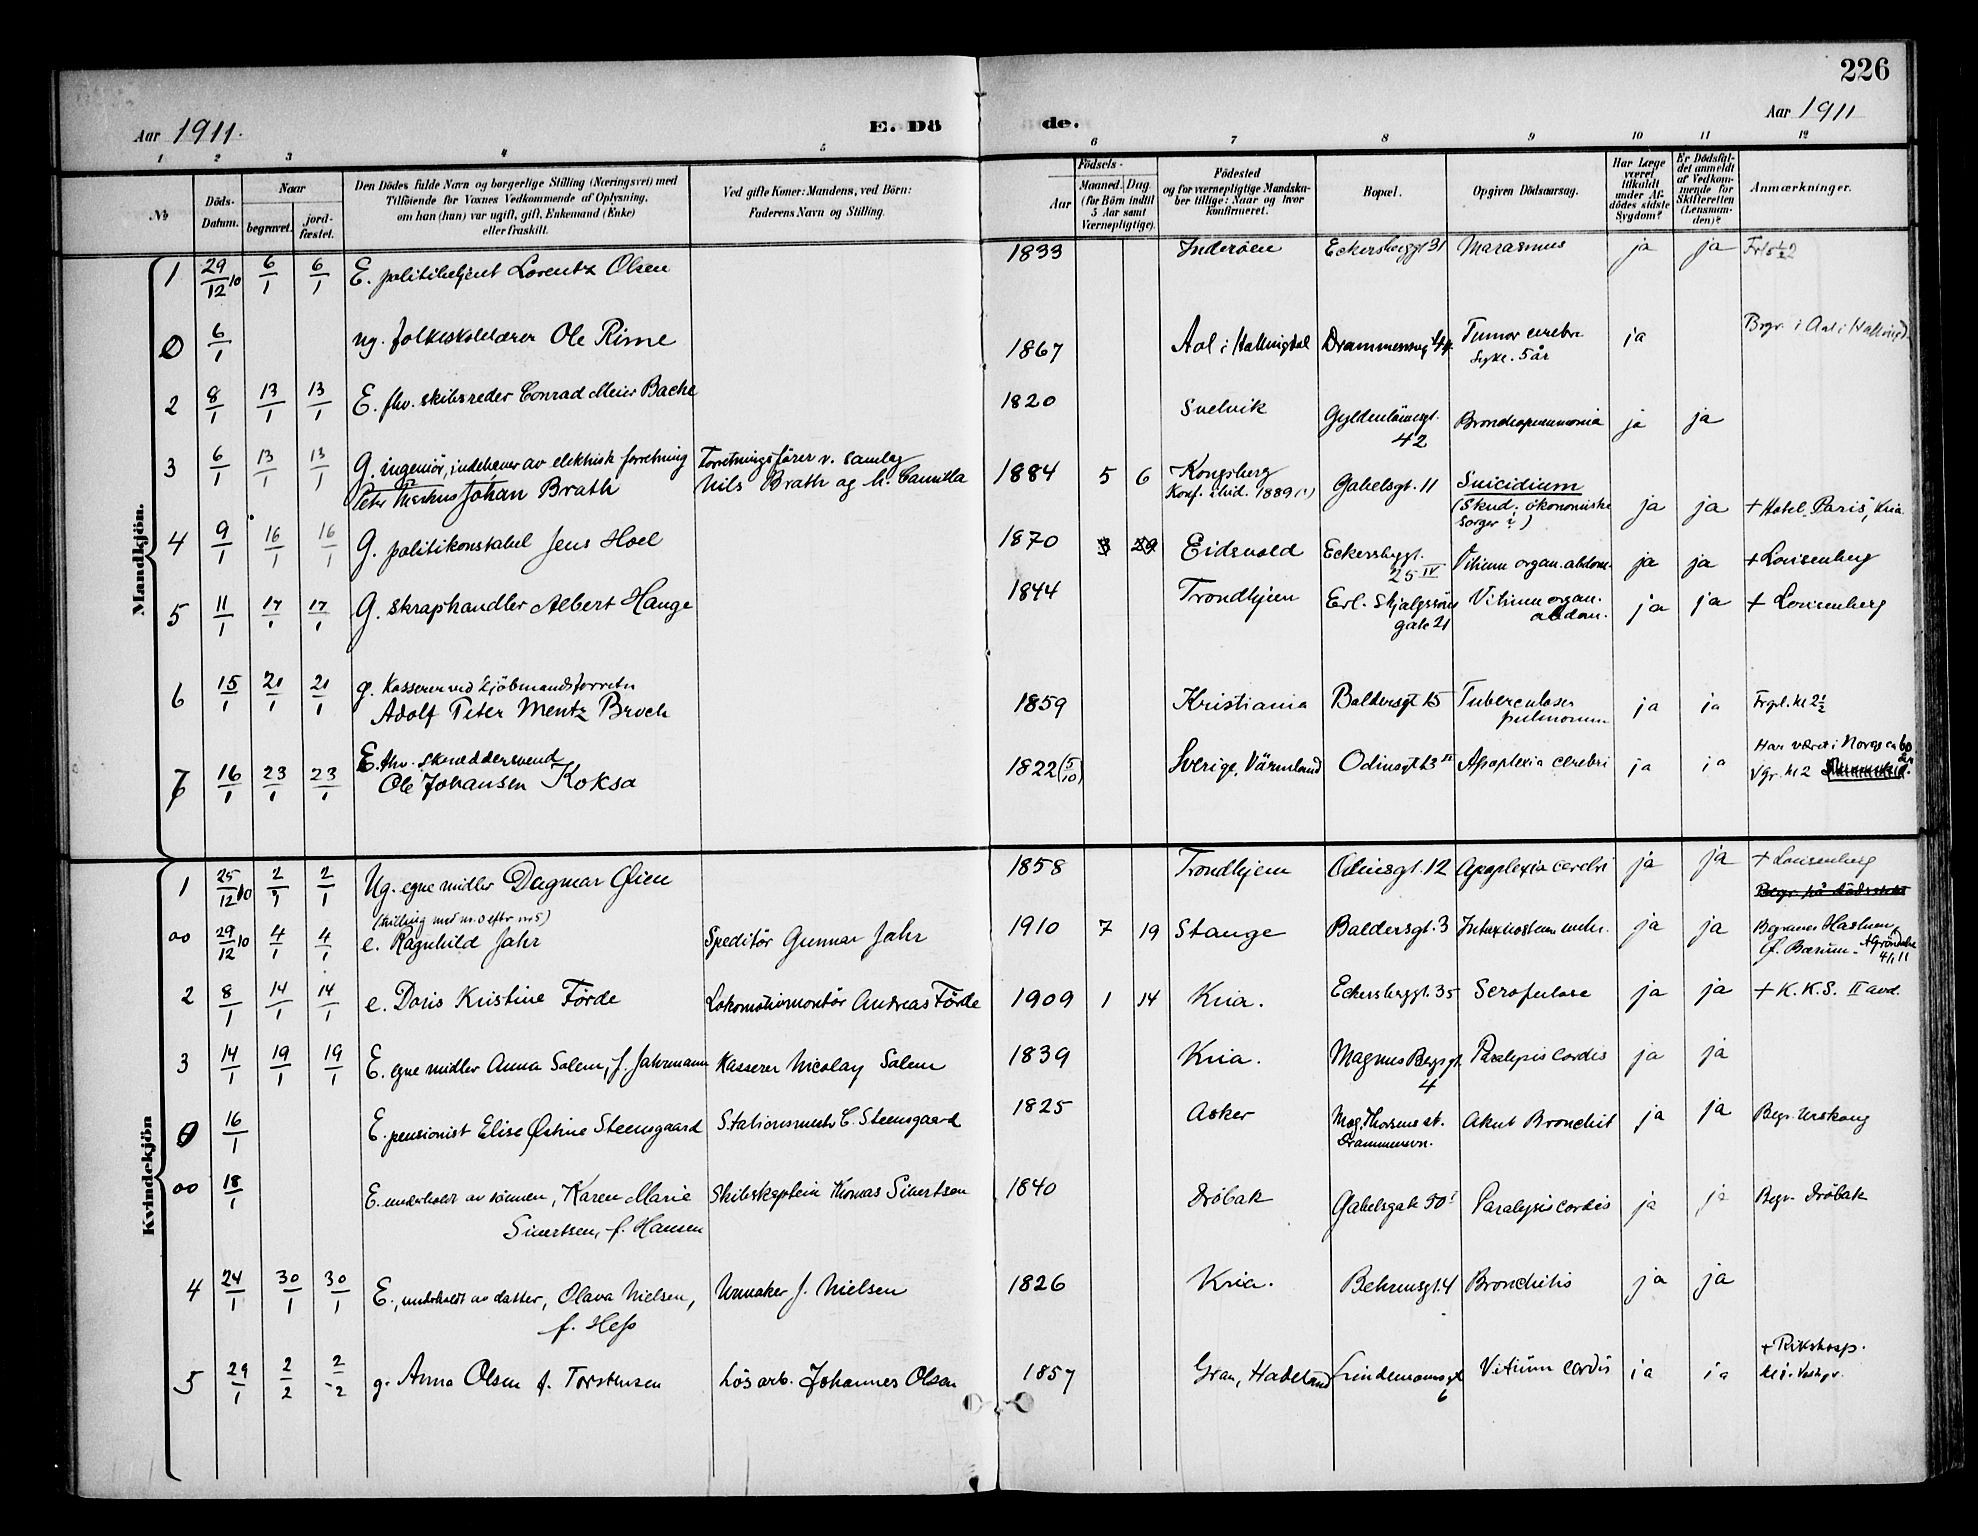 226
Aar 1911.
E. Dö de.
Aar 1911
1 2 3 4 5 6 7 8 9 10 11 12
No
Döds-Datum.
Naar
begravet.
jord-fæstet.
Den Dödes fulde Navn og borgerlige Stilling (Næringsvei) med
Tilföiende for Voxnes Vedkommende af Oplysning,
om han (hun) var ugift, gift, Enkemand (Enke)
eller fraskilt.
Ved gifte Koner: Mandens, ved Börn:
Faderens Navn og Stilling.
Födsels-
Aar
Maaned. Dag.
(for Börn indtil
5 Aar samt
Værnepligtige).
Födested
og for værnepligtige Mandska-
ber tillige: Naar og hvor
konfirmeret.
Bopæl.
Opgiven Dödsaarsag.
Har Læge
været
tilkaldt
under Af-
dödes sidste
Sygdom?
Er Dödsfal-
det anmeldt
af Vedkom-
mende for
Skifteretten
(Lensman-
den)?
Anmærkninger.
Mandkjön.
1 29/12 10 6/1 6/1 E. politibetjent Lorentz Olsen 1833 Inderøen Eckersberggt 31 Marasmus ja ja
0 6/1 ug. folkeskolelærer Ole Rime 1867 Aal i Hallingdal Drammensvg Tumor cerebri ja Begr. i Aal i Hallingd.
Syk. 5 år
2 8/1 13/1 13/1 E. fhv. skibsreder Conrad Meier Bache 1820 Svelvik Gyldenløvesgt. 42 Bronchopneumonia ja ja
3 6/1 13/1 13/1 G. ingeniör, indehaver av elektrisk forretning Forretningsfører v. samlag 1884 5 6 Kongsberg Gabelsgt. 11 Suicidium ja ja + Hotel "Paris", Kria
Peter Markus Johan Brath Nils Brath og h. Camilla Konf. ibid. 1889 (?) (Skyld: økonomiske
sorger?)
4 9/1 16/1 16/1 G. politikonstabel Jens Hoel 1870 Eidsvold Eckersbggt. 25 IV Vitium organ. abdom. ja ja + Lovisenberg
5 11/1 17/1 17/1 G. skraphandler Albert Hauge 1844 Trondhjem Erl. Skjalgssöns gate 21 Vitium organ. abdom. ja ja + Lovisenberg
6 15/1 21/1 21/1 g. Kasserer ved kjöbmandsforretn
Adolf Peter Mentz Broch 1859 Kristiania Baldersgt 15 Tuberculosis pulmonum ja ja Frpl. kl 2 1/2
7 16/1 23/1 23/1 E. fhv. skræddersvend
Ole Johansen Koksa 1822 (5/10) Sverige, Värmland Odinsgt 13 II Apoplexia cerebri ja ja Har været i Norge ca 60 år.
Vgr. kl 2
Kvindekjön
1 25/12 10 2/1 2/1 Ug. egne midler Dagmar Øien 1858 Trondhjem Odinsgt. 12 Apoplexia cerebri ja ja + Lovisenberg
(tvilling med nr. 0 efter nr 5)
oo 29/12 10 4/1 4/1 e. Ragnhild Jahr Speditör Gunnar Jahr 1910 7 19 Stange Baldersgt. 3 ja ja Begraves Haslum,
f. Bærum.
2 8/1 14/1 14/1 e. Doris Kristine Förde Lokomotivmontör Andreas Förde 1909 1 14 Kria. Eckersberggt. 35 Scrofulose ja ja + K. K. S. II avd.
3 14/1 19/1 19/1 E. egne midler Anna Salem, f. Jahrmann Kasserer Nicolay Salem 1839 Kria. Magnus Bergsgt. 4 Paralysis cordis ja ja
0 16/1 E. pensionist Elise Østine Steensgaard Stationsmester C. Steensgaard 1825 Asker Mog. Thorsens st. Drammensvn. Akut Bronchit ja ja Begr. Urskoug
oo 18/1 E. underholdt av sönnen, Karen Marie Skibskaptein Thomas Sivertsen 1840 Dröbak Gabelsgate 50 I Paralysis cordis ja ja Begr. Dröbak
Sivertsen, f. Hansen
4 24/1 30/1 30/1 E., underholdt av datter, Olava Nielsen, Urmaker J. Nielsen 1826 Kria. Behrensgt. 4 Bronchitis ja ja
f. Hess
5 29/1 2/2 2/2 g. Anna Olsen f. Torstensen Lösarb. Johannes Olsen 1857 Gran, Hadeland Lindemannsgt 6 Vitium cordis ja ja + Rikshosp.